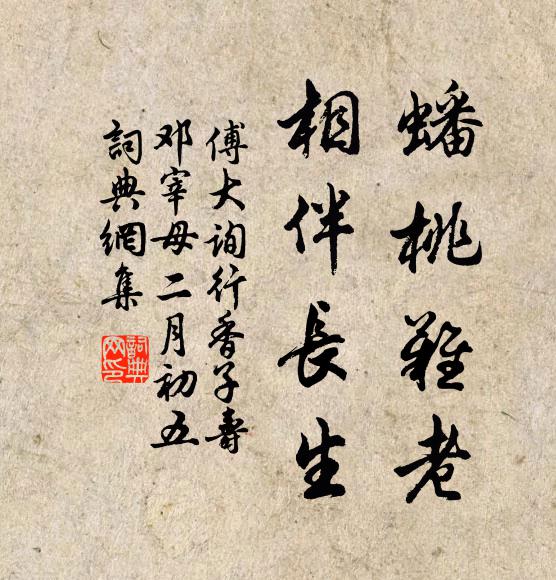 蟠桃難老
相伴長生
傅大詢行香子壽
邓宰母二月初五
詞典網集
詞典
网印